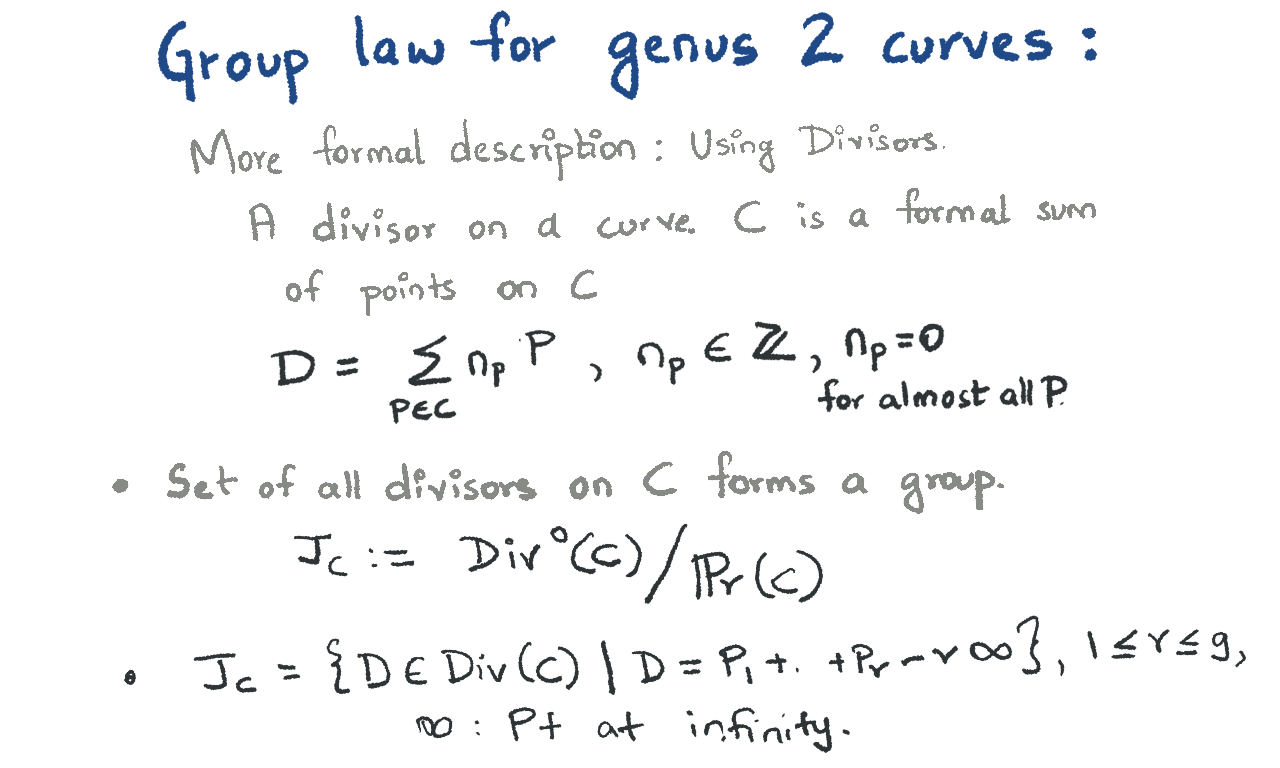 Group law for genus 2 curves :
More formal description : Using Divisors.
A divisor on a curve C is a formal sum
of points on C
D = Σ n_P P , n_P ∈ ℤ, n_P = 0
P∈C for almost all P.
• Set of all divisors on C forms a group.
J_C := Div°(C)/ℙr(C)
• J_C = {D ∈ Div(C) | D = P₁ + . + P_r - r∞}, 1 ≤ r ≤ g,
∞ : Pt at infinity.